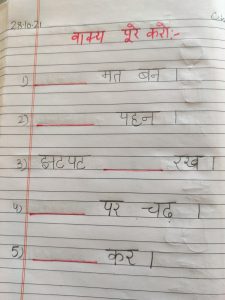 28-10-21
वाक्य पूरे करो:-
1) ______ मत बन ।
2) ______ पहन ।
3) झटपट ______ रख ।
4) ______ पर चढ़ ।
5) ______ कर ।